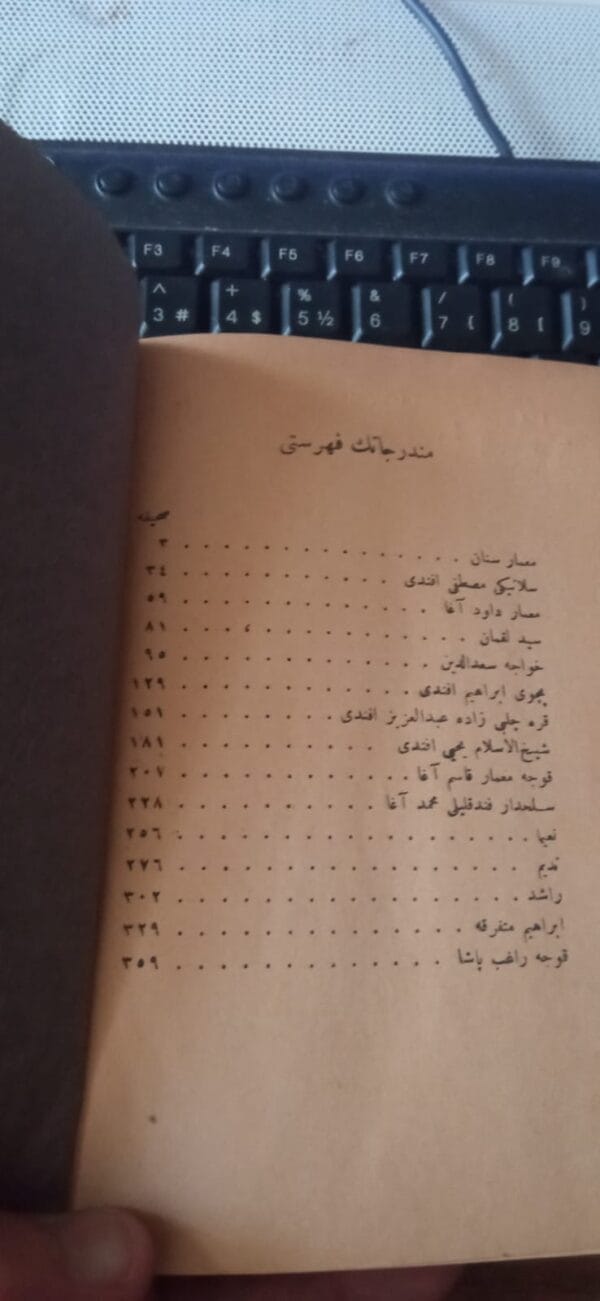 F3 F4 F5 F6 F7 F8 F9
^ + % & / ( )
3 # 4 $ 5 ½ 6 7 { 8 [ 9
مندرجاتك فهرستی
صحیفه
معمار سنان . . . . . . . . . . . . . ٣
سلانیكی مصطفی افندی . . . . . . . . . . . ٣٤
معمار داود آغا . . . . . . . . . . . . ٥٩
سید لقمان . . . . . . . . . . . . ٨١
خواجه سعدالدین . . . . . . . . . . . . ٩٥
پچوی ابراهیم افندی . . . . . . . . . . . . ١٢٩
قره چلبی زاده عبدالعزیز افندی . . . . . . . . ١٥١
شیخ‌الاسلام یحیی افندی . . . . . . . . . . ١٨٩
قوجه معمار قاسم آغا . . . . . . . . . . . ٢٠٧
سلحدار فندقلیلی محمد آغا . . . . . . . . . . ٢٢٨
نعیما . . . . . . . . . . . . . . . . ٢٥٦
ندیم . . . . . . . . . . . . . . . ٢٧٦
راشد . . . . . . . . . . . . . . . . ٣٠٢
ابراهیم متفرقه . . . . . . . . . . . . . ٣٢٩
قوجه راغب پاشا . . . . . . . . . . . . ٣٥٩